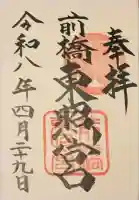 奉拝
前橋東照宮
令和八年四月二十九日